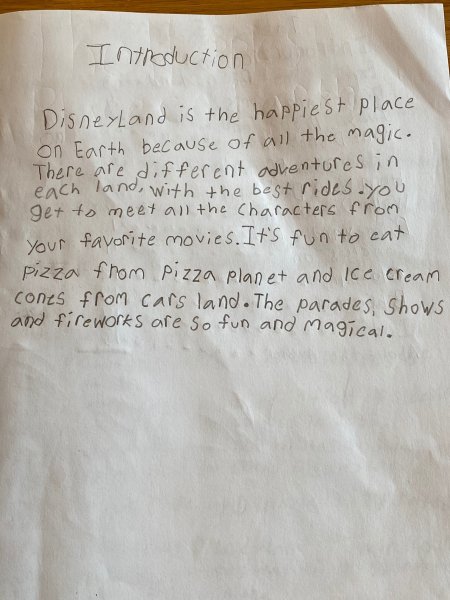 Introduction
Disneyland is the happiest place
on Earth because of all the magic.
There are different adventures in
each land, with the best rides. you
get to meet all the characters from
your favorite movies. It's fun to eat
pizza from pizza planet and Ice cream
cones from cars land. The parades, shows
and fireworks are so fun and magical.